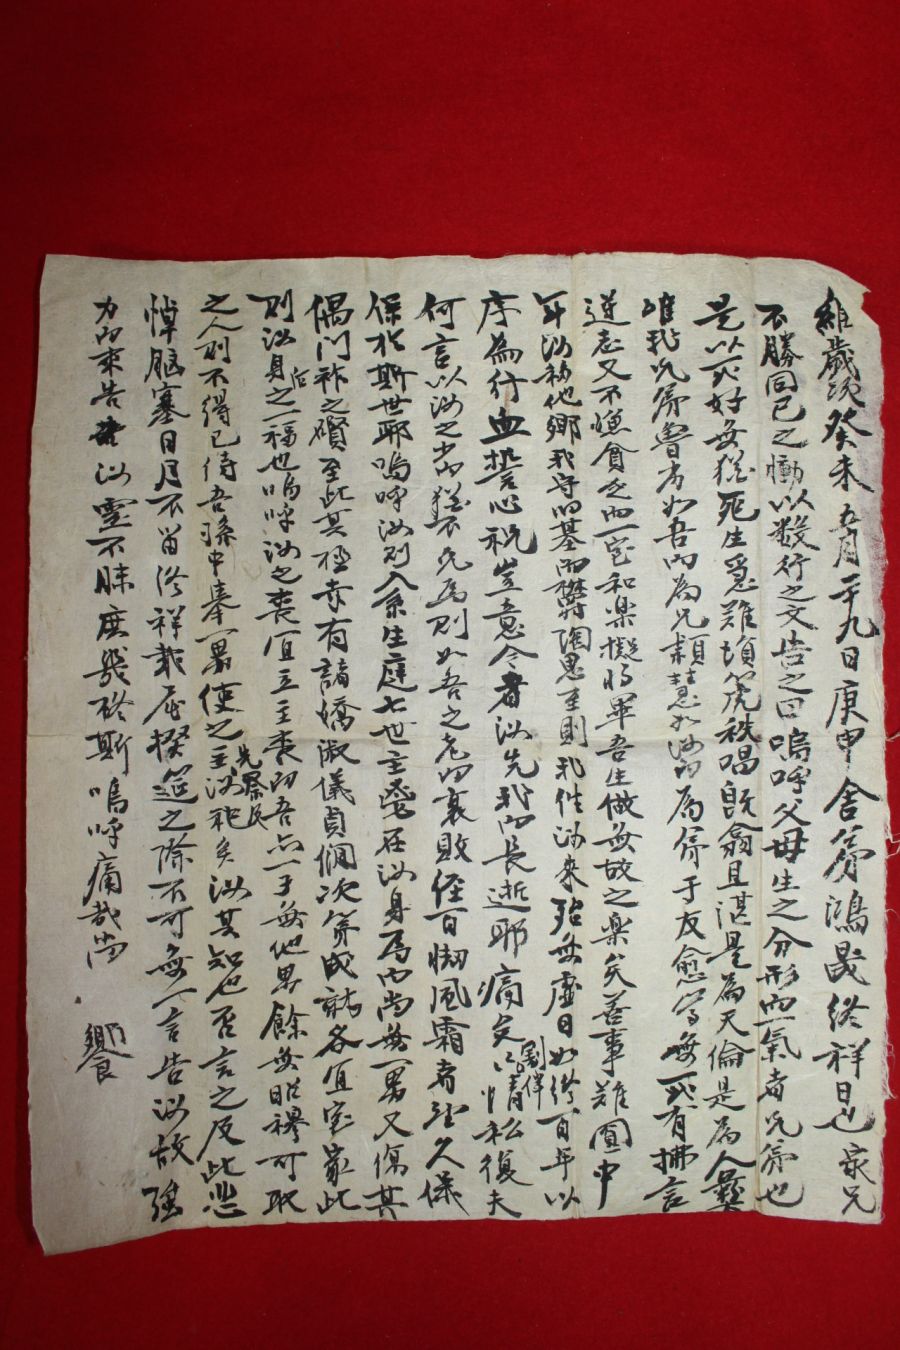 維歲次癸未五月二十九日庚申舍弟鴻晟終祥日也家兄
不勝同己之慟以數行之文告之曰嗚呼父母生之分形而一氣者兄弟也
是以式好無猶死生急難塤箎秩唱旣翕且湛是爲天倫是爲人彝
唯我兄弟魯劣如吾而爲兄穎慧如汝而爲弟于友愈篤每一式有拂言
逆志又不憚貧乏而一室和樂擬將畢吾生做無故之樂矣善事難圓中
年汝移他鄕我守旧基而鬱陶思至則我往汝來殆無虛日如終百年以
序爲行血誓心祝豈意今者汝先我而長逝耶痛矣割半之情私復夫
何言以汝之猶不免焉則如吾之老而衰敗經百風霜者久係
保於斯世耶嗚呼汝則入系生庭七世主鬯在汝身焉而尙無一男又係其
偶門祚之釁至此其極幸有諸嬌淑儀貞嫺次第成就各宜室家此
則汝身後之一福也嗚呼汝之喪宜立主喪而吾亦一子無他男餘無昭穆可取
之人則不得已待吾孫中奉一男使之主汝祀矣汝其知也否言之及此悲
先祭民
悼膈塞日月不留終祥載屆撤筵之際不可無一言告汝故强
力而來告汝靈不昧庶幾啓斯嗚呼痛哉尙
饗